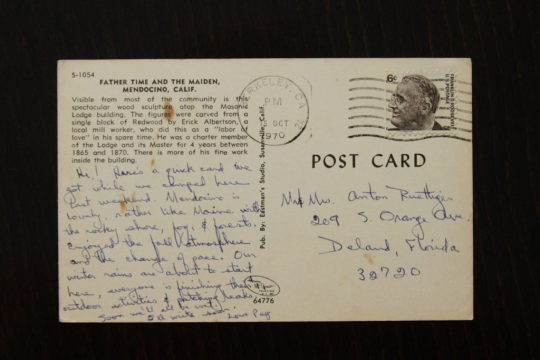 S-1054
FATHER TIME AND THE MAIDEN,
MENDOCINO, CALIF.
Visible from most of the community is this
spectacular wood sculpture atop the Masonic
Lodge building. The figures were carved from a
single block of Redwood by Erick Albertson, a
local mill worker, who did this as a "labor of
love" in his spare time. He was a charter member
of the Lodge and its Master for 4 years between
1865 and 1870. There is more of his fine work
inside the building.
Hi! Here's a quick card we
got while we camped here
last weekend. Mendocino is
lovely, rather like Maine with
the rocky shore, fog, &
enjoyed the fall atmosphere
and the change of pace. Our
winter rains are about to start
here, everyone is finishing their
outdoor activities & patching leaks.
Soon we'll all be
I'll write soon. Love Peg
Pub. By: Eastman's Studio, Susanville, Calif.
64776
BERKELEY, CA
PM
OCT
1970
6c
FRANKLIN D. ROOSEVELT
U.S. POSTAGE
POST CARD
Mr & Mrs. Anton Ruettiger
209 S. Orange Ave.
Deland, Florida
32720